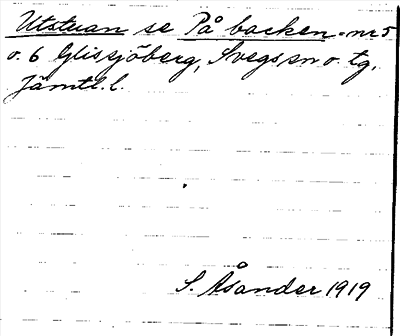 Utstuan se På backen. nr 5
o. 6 Glissjöberg, Svegs sn o tg.
Jämtl. l.
S. Åsander 1919